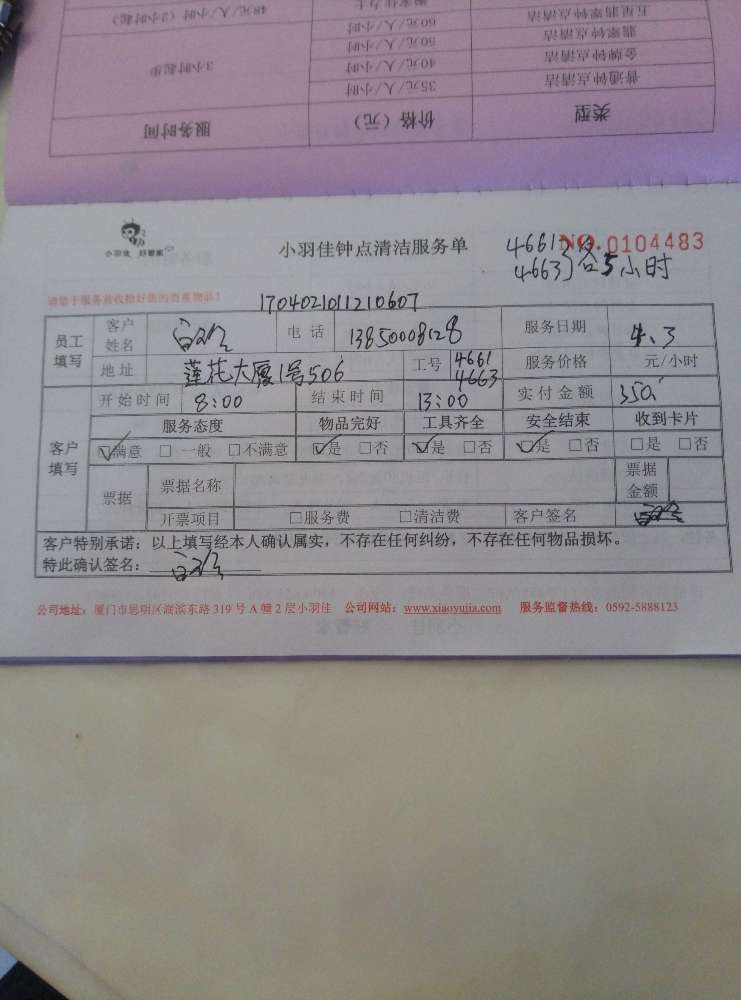 五星翡翠钟点清洁
48元/人/小时(2小时起)
翡翠钟点清洁 60元/人/小时
金牌钟点清洁 50元/人/小时
40元/人/小时 3小时起步
普通钟点清洁 35元/人/小时
类型 价格(元) 服务时间
小羽佳 好管家
小羽佳钟点清洁服务单
NO.0104483
4661 4663 } 各5小时
请您于服务前收拾好您的贵重物品!
1704021011210607
员工填写 客户姓名 电话 13850008128 服务日期 4.3
地址 莲花大厦1号506 工号 4661 4663 服务价格 元/小时
客户填写 开始时间 8:00 结束时间 13:00 实付金额 350
服务态度 物品完好 工具齐全 安全结束 收到卡片
☑满意 □一般 □不满意 ☑是 □否 ☑是 □否 ☑是 □否 □是 □否
票据 票据名称 票据金额
开票项目 □服务费 □清洁费 客户签名
客户特别承诺:以上填写经本人确认属实,不存在任何纠纷,不存在任何物品损坏。
特此确认签名:
公司地址:厦门市思明区湖滨东路319号A幢2层小羽佳 公司网站:www.xiaoyujia.com 服务监督热线:0592-5888123